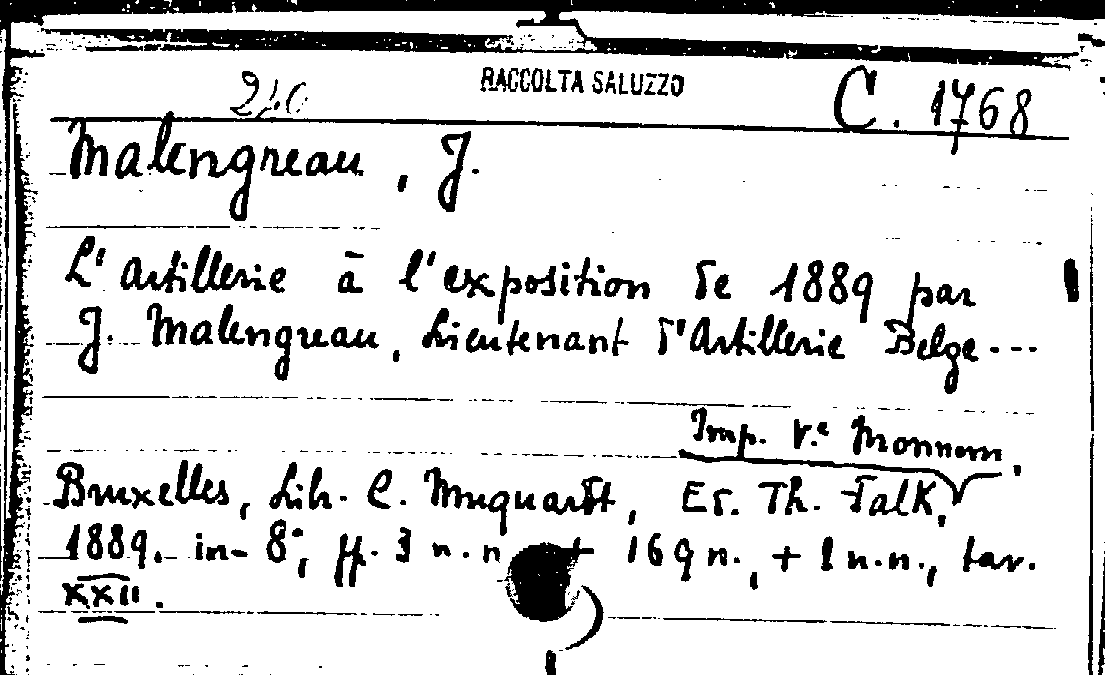 240 RACCOLTA SALUZZO C. 1768
Malengreau, J.
L'Artillerie à l'exposition de 1889 par
J. Malengreau, Lieutenant d'Artillerie Belge...
Imp. V.e Monnom.
Bruxelles, Lib. C. Muquardt, Ed. Th. Falk,
1889. in-8°; pp. 3 n.n. + 169 n., + 1 n.n., tav.
XXII.